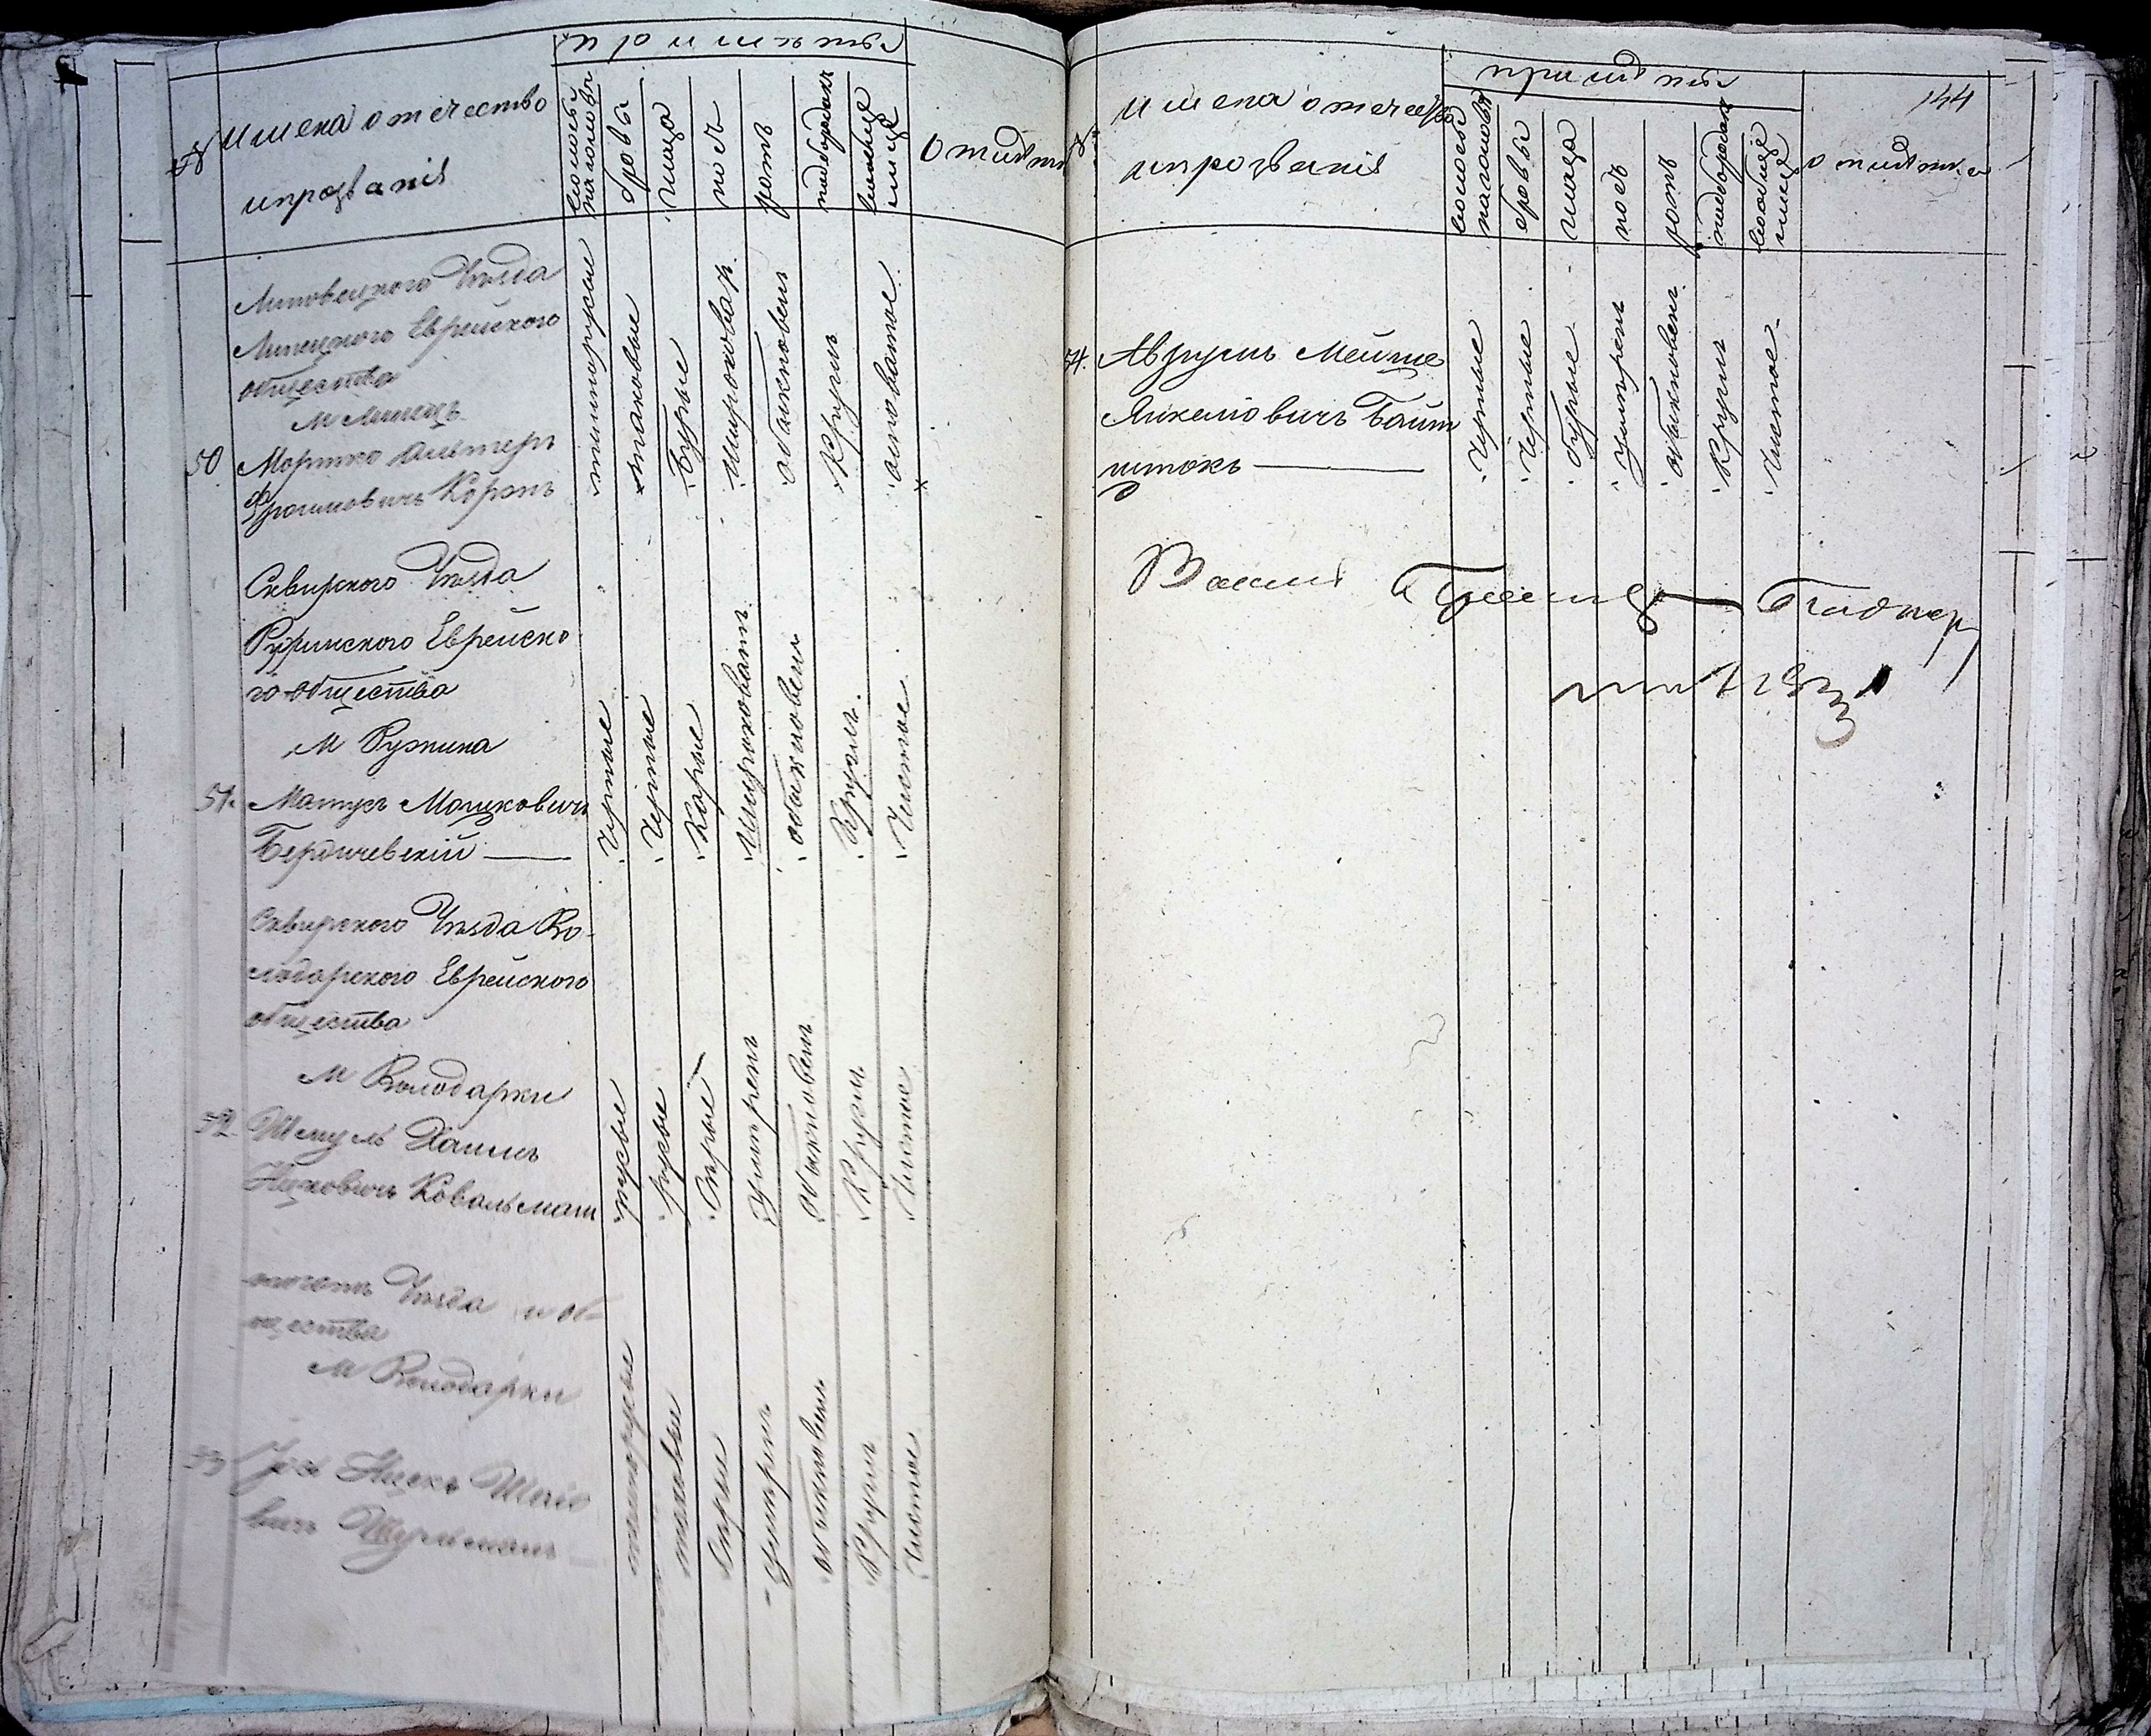 №
Имена отечество
и прозванiя
примѣты
волосы
на голове
брови
глаза
носъ
ротъ
подбородокъ
вообще
лице
Отмѣтк
Липовецкого Уѣзда
Липецкого Еврейского
общества
М Липецъ
50 Мортко Альтеръ
Фроимовичъ Корэнъ
темнорусые
таковые
Бурые
Широковат.
обыкновен
Круглъ
осповатое
Сквирского Уѣзда
Ружинского Еврейско
го общества
М Ружина
51. Матусъ Мошковичъ
Бердичевскiй
Черные
Черные
Карые
Широковатъ
обыкновенъ
Круглъ
Чистое
Сквирского Уѣзда Во-
лодарского Еврейского
общества
М Володарки
52. Шмуль Хаимъ
Нуховичъ Ковальманъ
русые
русые
Сѣрые
Умѣренъ
Обыкновенъ
Круглъ
Чистое
Уѣзда и об-
щества
М Володарки
53
темнорусые
таковы
Сѣрые
Умѣренъ
обыкновенъ
Круглъ
Чистое
144
№
Имена отечество
и прозванiя
примѣты
волосы
на голове
брови
глаза
носъ
ротъ
подбородокъ
вообще
лице
отмѣтка
54. Аврумъ Мейше
Янкелiовичъ Байт
штокъ
Черные
Черные
бурые
Умѣренъ
обыкновенъ
Круглъ
Чистое